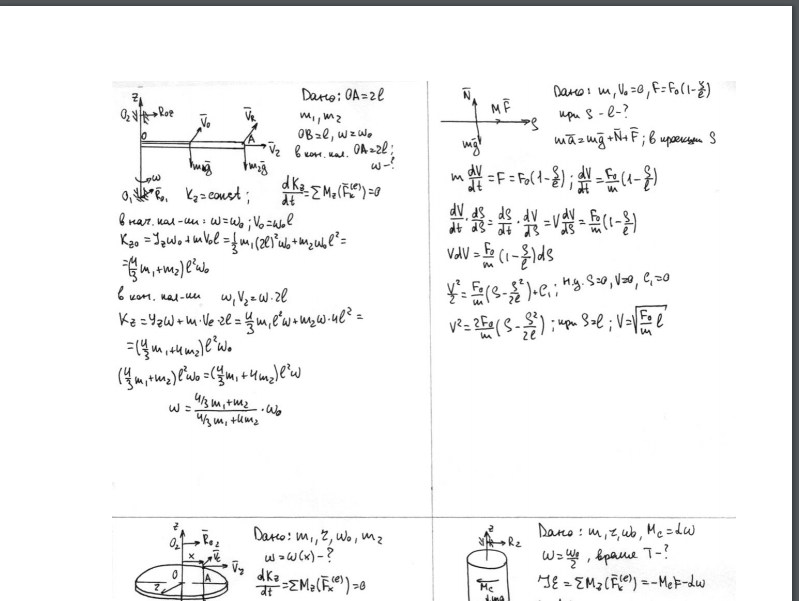 Дано: OA=2l
m₁, m₂
OB=l, ω=ω₀
в кон. пол. OA=2l;
ω-?
z
O₂ R̄o₂
V̄₀ V̄ₑ
O A V̄₂
m₁ḡ m₂ḡ
ω
O₁ R̄o₁
K_z=const; dK_z/dt=ΣM_z(F̄ₖ⁽ᵉ⁾)=0
в нач. пол-ии: ω=ω₀; V₀=ω₀l
K_z₀=J_zω₀+mV₀l=1/3 m₁(2l)²ω₀+m₂ω₀l²=
=(4/3 m₁+m₂)l²ω₀
в кон. пол-ии ω, V₂=ω·2l
K_z=J_zω+m·Vₑ·2l=4/3 m₁l²ω+m₂ω·4l²=
=(4/3 m₁+4m₂)l²ω₀
(4/3 m₁+m₂)l²ω₀=(4/3 m₁+4m₂)l²ω
ω=(4/3 m₁+m₂)/(4/3 m₁+4m₂)·ω₀
N̄
M F̄
S
mḡ
Дано: m, V₀=0, F=F₀(1-S/l)
при S-l-?
mā=mḡ+N̄+F̄; в проекции S
m dV/dt=F=F₀(1-S/l); dV/dt=F₀/m(1-S/l)
dV/dt·dS/dS=dS/dt·dV/dS=V dV/dS=F₀/m(1-S/l)
VdV=F₀/m(1-S/l)dS
V²/2=F₀/m(S-S²/2l)+C₁; н.у. S=0, V=0, C₁=0
V²=2F₀/m(S-S²/2l); при S=l; V=√(F₀/m l)
z
O₂ R̄o₂
x V̄ₑ
O A V̄₂
r
Дано: m₁, r, ω₀, m₂
ω=ω(x)-?
dK_z/dt=ΣM_z(F̄ₖ⁽ᵉ⁾)=0
z
R₂
M_c
Дано: m, r, ω₀, M_c=αω
ω=ω₀/2, время T-?
Jε=ΣM_z(F̄ₖ⁽ᵉ⁾)=-M_c=-αω